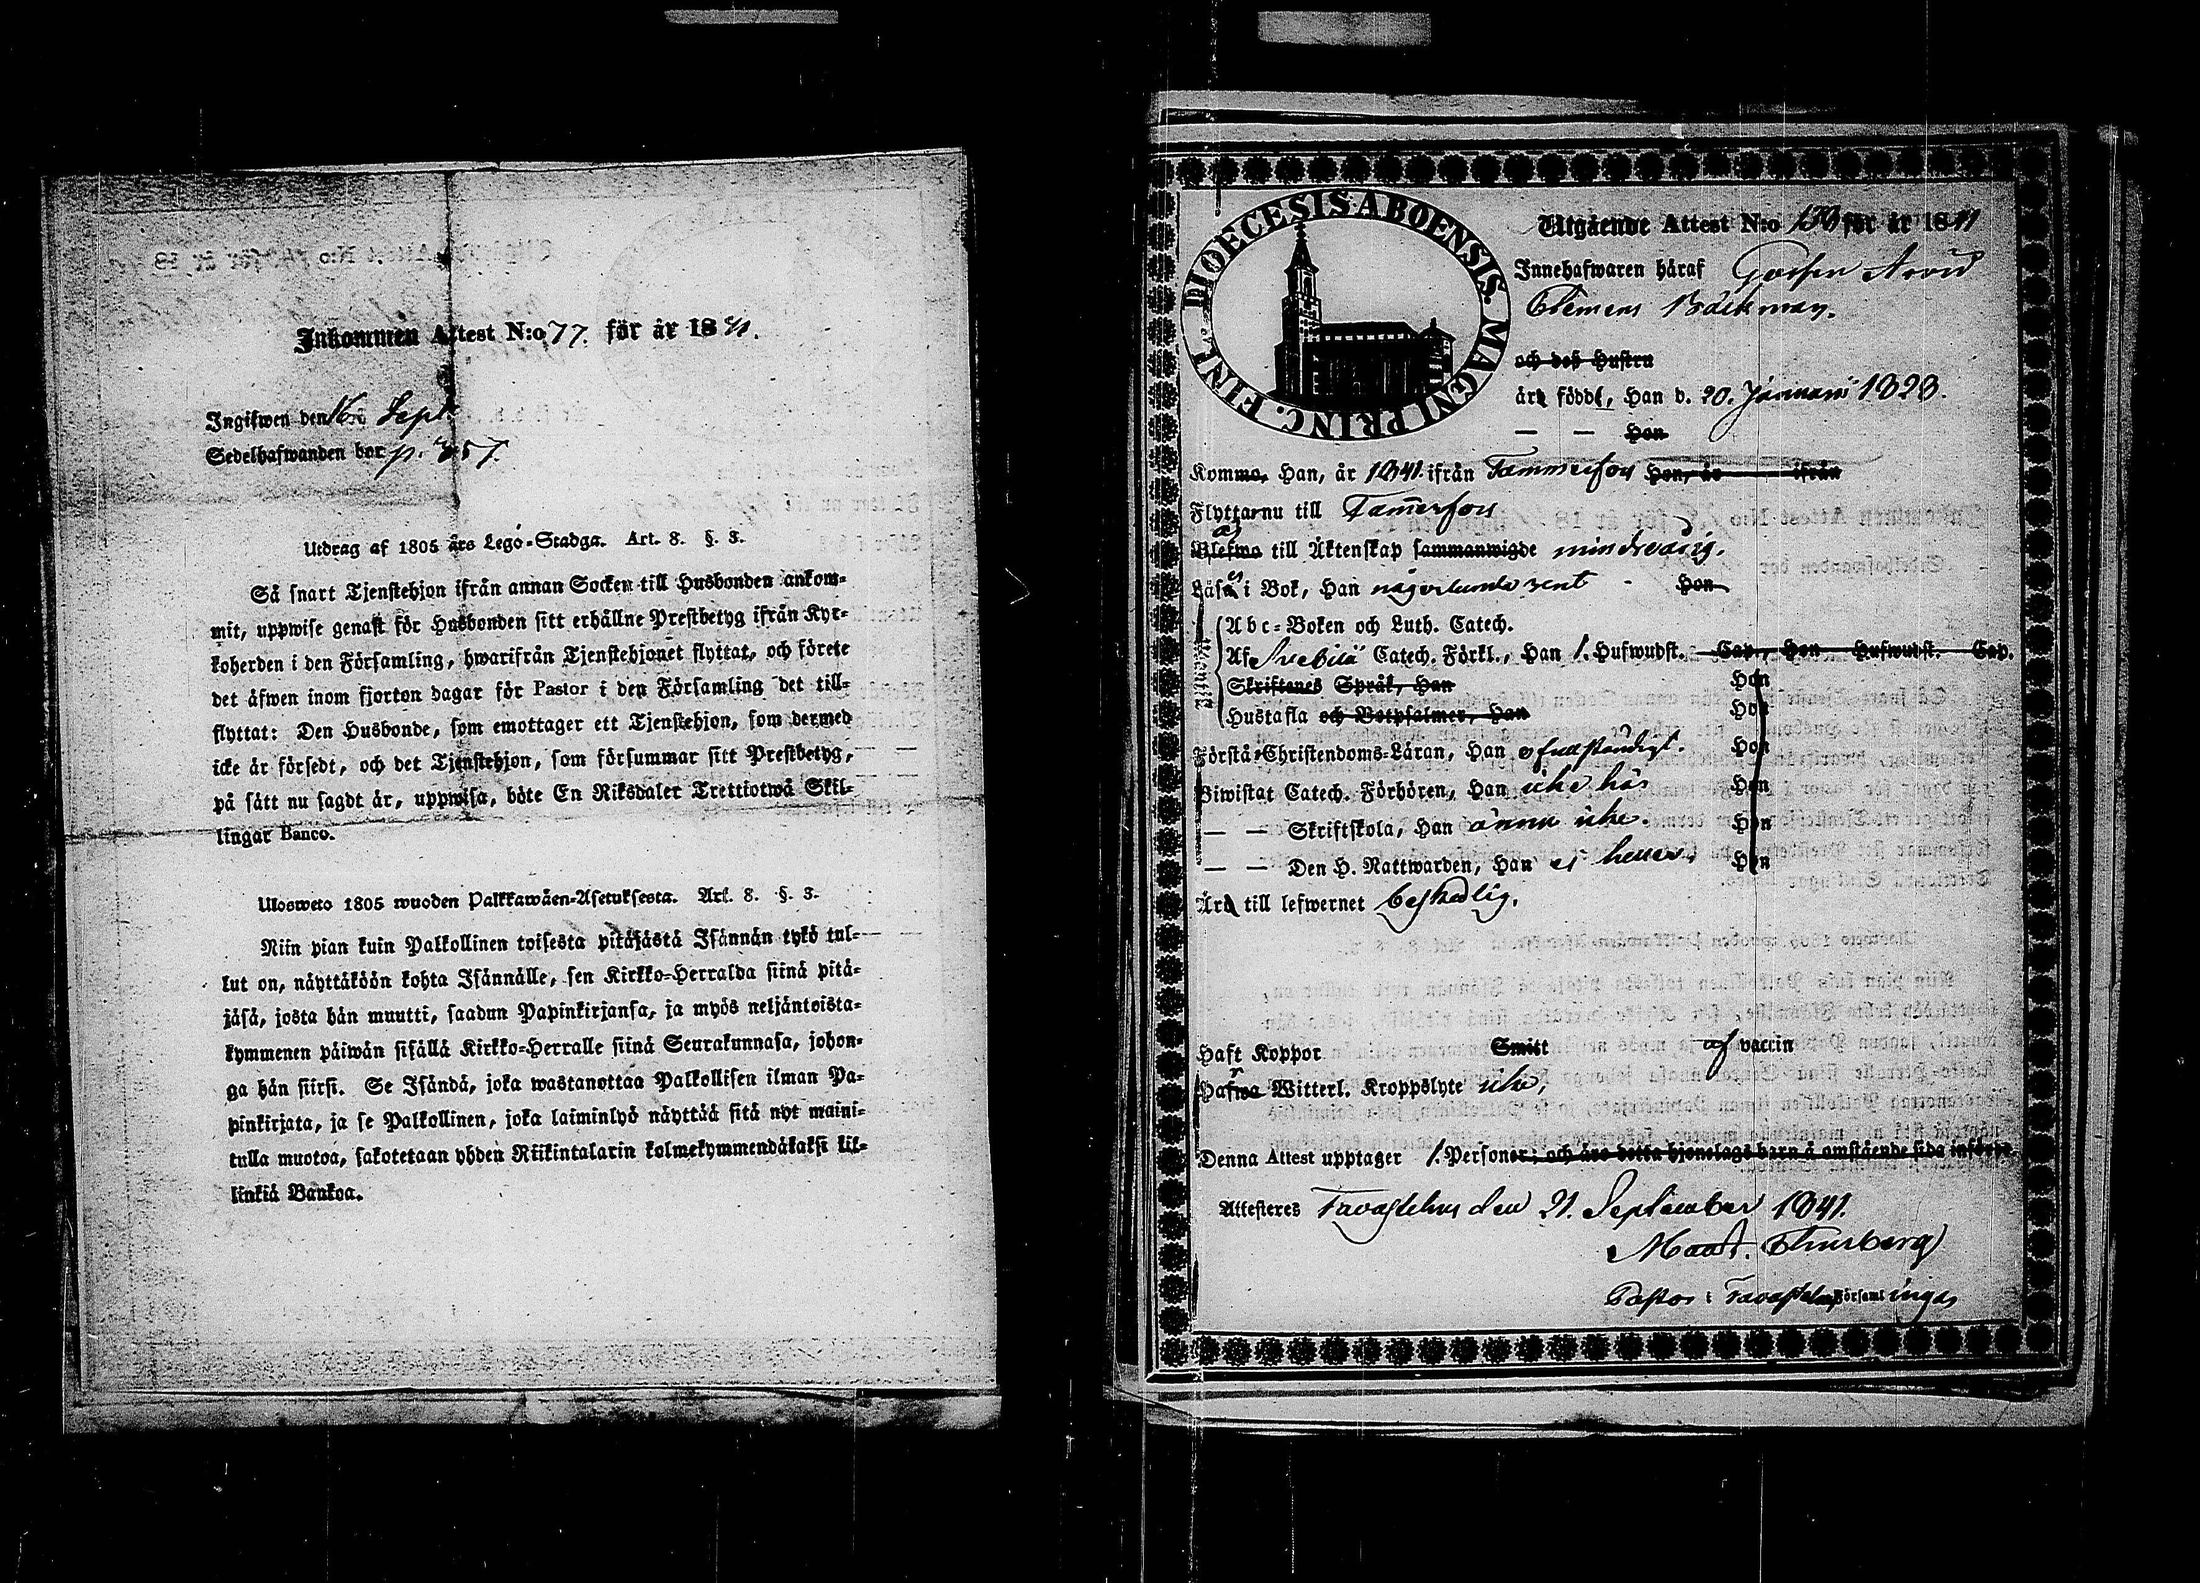 Inkommen Attest N:o 77. för år 1841.
Ingifwen den Sept.
Sedelhafwanden bor p. 357.
Utdrag af 1805 års Lego-Stadga. Art. 8. §. 3.
Så snart Tjenstehjon ifrån annan Socken till Husbonden ankom-
mit, uppwise genast för Husbonden sitt erhållne Prestbetyg ifrån Kyr-
koherden i den Församling, hwarifrån Tjenstehjonet flyttat, och förete
det äfwen inom fjorton dagar för Pastor i den Församling det till-
flyttat: Den Husbonde, som emottager ett Tjenstehjon, som dermed
icke är försedt, och det Tjenstehjon, som försummar sitt Prestbetyg,
på sätt nu sagdt är, uppwisa, böte En Riksdaler Trettiotwå Skil-
lingar Banco.
Ulosweto 1805 wuoden Palkkawäen-Asetuksesta. Art. 8. §. 3.
Niin pian kuin Palkollinen toisesta pitäjästä Isännän tykö tul-
lut on, näyttäköön kohta Isännälle, sen Kirkko-Herralda siinä pitä-
jäsä, josta hän muutti, saadun Papinkirjansa, ja myös neljäntoista-
kymmenen päiwän sisällä Kirkko-Herralle siinä Seurakunnasa, johon-
ga hän siirsi. Se Isändä, joka wastanottaa Palkollisen ilman Pa-
pinkirjata, ja se Palkollinen, joka laiminlyö näyttää sitä nyt maini-
tulla muotoa, sakotetaan yhden Riikintalarin kolmekymmendäkaksi kil-
linkiä Bankoa.
DIOECESIS ABOENSIS. MAGNI PRINC. FINL.
Utgående Attest N:o 150 för år 1841
Innehafwaren häraf Gossen Arvid
Clemens Bäckman.
och des Hustru
äro född, Han d. 20. Januarii 1828.
— — Hon
Komma, Han, år 1841. ifrån Tammerfors Hon, år ifrån
Flyttar nu till Tamerfors
Blefwo till Äktenskap sammanwigde mindreårig.
Läser i Bok, Han någorlunda rent - Hon
Abc-Boken och Luth. Catech.
Af Svebilii Catech. Förkl., Han 1. Hufwudst. Cap., Hon Hufwudst. Cap.
Skriftenes Språk, Han Hon
Hustafla och Botpsalmer, Han Hon
Förstår Christendoms-Läran, Han ofullständigt. Hon
Biwistat Catech. Förhören, Han icke här Hon
— — Skriftskola, Han ännu icke. Hon
— — Den H. Nattwarden, Han ej heller. Hon
Är till lefwernet beskedlig.
Haft Koppor Smitt af vaccin
Hafwa Witterl. Kroppslyte icke,
Denna Attest upptager 1. Personer; och äro detta hjonelags barn å omstående sida införde.
Attesteres Tavastehus den 21. September 1841.
Pastor i Tavastehus Församlingar